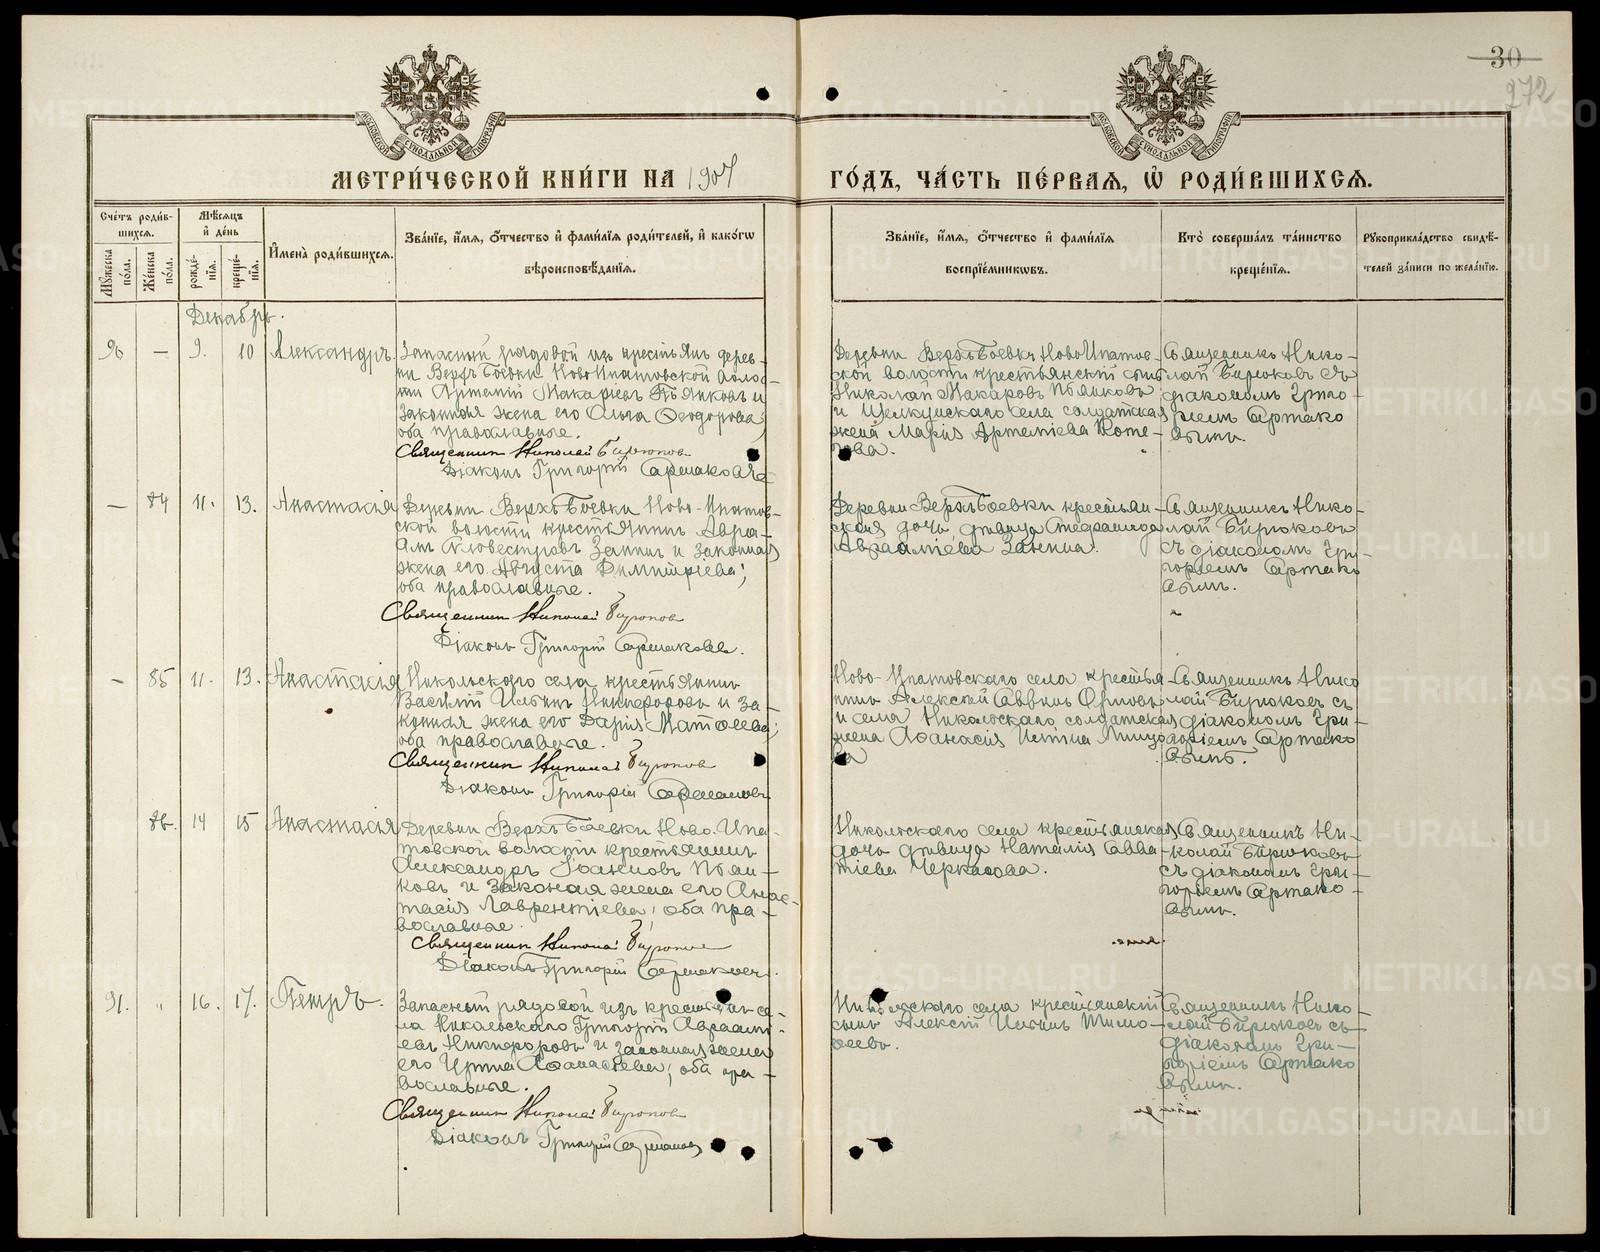 30
272
МОСКОВСКОЙ СѴНОДАЛЬНОЙ ТИПОГРАФІИ
МОСКОВСКОЙ СѴНОДАЛЬНОЙ ТИПОГРАФІИ
МЕТРИ́ЧЕСКОЙ КНИ́ГИ НА 1907
ГО́ДЪ, ЧА́СТЬ ПЕ́РВАЯ, Ѡ РОДИ́ВШИХСЯ.
Сче́тъ роди́в-
шихся.
Мѣ́сяцъ
и де́нь
Му́жеска
по́ла.
Же́нска
по́ла.
рожде́-
нїя.
креще́-
нїя.
Имена̀ роди́вшихся.
Зва́нїе, и́мя, о́тчество и фами́лїя роди́телей, и како́гѡ
вѣроисповѣ́данїя.
Зва́нїе, и́мя, о́тчество и фами́лїя
воспрїе́мниковъ.
Кто̀ соверша́лъ та́инство
креще́нїя.
Рꙋкоприкла́дство свидѣ́-
телей за́писи по жела́нїю.
Декабрь.
90 — 9. 10 Александръ.
Запасный рядовой изъ крестьянъ дерев-
ни Верхъ Боевки Ново Ипатовской волос-
ти Артемій Макаріевъ Пьянковъ и
законная жена его Анна Ѳеодорова;
оба православные.
Священник Николай Бирюков
Діаконъ Григорій Сармаковъ
Деревни Верхъ Боевки Ново Ипатов-
ской волости крестьянскій сынъ
Николай Макаровъ Пьянковъ
и Щелкунскаго села солдатская
жена Марія Артеміева Коте-
гова.
Священникъ Нико-
лай Бирюковъ съ
діакономъ Григо-
ріемъ Сармако
вымъ.
— 84 11. 13. Анастасія
Деревни Верхъ Боевки Ново-Ипатов-
ской волости крестьянинъ Авра-
амъ Силовестровъ Занинъ и законная
жена его Августа Димитріева;
оба православные.
Священник Николай Бирюков
Діаконъ Григорій Сармаковъ.
Деревни Верхъ Боевки крестьян-
ская дочь, дѣвица Стефанида
Авраамiева Занина.
Священникъ Нико-
лай Бирюковъ
съ діакономъ Гри-
горіемъ Сармако
вымъ.
— 85 11. 13. Анастасія
Никольскаго села крестьянинъ
Василій Ильинъ Никифоровъ и за-
конная жена его Дарія Матѳеева;
оба православные.
Священник Николай Бирюков
Діаконъ Григорій Сармаковъ
Ново-Ипатовскаго села крестья-
нинъ Алексѣй Саввинъ Орловъ
и села Никольскаго солдатская
жена Аѳанасія
ва
Священникъ Нико
лай Бирюковъ съ
діакономъ Гри-
горіемъ Сармако
вымъ.
86. 14 15 Анастасія
Деревни Верхъ Боевки Ново-Ипа-
товской волости крестьянинъ
Александръ Іоанновъ Пьян-
ковъ и законая жена его Анас-
тасія Лаврентіева; оба пра-
вославные.
Священник Николай Бирюков
Діаконъ Григорій Сармаковъ.
Никольскаго села крестьянская
дочь дѣвица Наталія Савва-
тіева Черкасова.
Священникъ Ни-
колай Бирюковъ
съ діакономъ Гри-
горіемъ Сармако-
вымъ.
91. " 16. 17. Петръ.
Запасный рядовой изъ крестьянъ се-
ла Никольскаго Григорій Авраамі-
евъ Никифоровъ и законная жена
его Ирина Аѳанасьева; оба пра-
вославные.
Священник Николай Бирюков
Діаконъ Григорій Сармаковъ
Никольскаго села крестьянскій
сынъ Алексій Ильинъ Тимо-
ѳеевъ.
Священникъ Нико-
лай Бирюковъ съ
діакономъ Гри-
горіемъ Сармако
вымъ.
METRIKI.GASO-URAL.RU